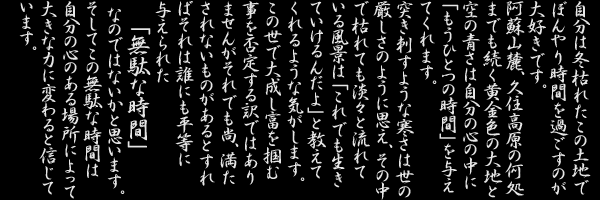 自分は冬枯れたこの土地で
ぼんやり時間を過ごすのが
大好きです。
阿蘇山麓、久住高原の何処
までも続く黄金色の大地と
空の青さは自分の心の中に
「もうひとつの時間」を与え
てくれます。
突き刺すような寒さは世の
厳しさのように思え、その中
で枯れても淡々と流れて
いる風景は「これでも生き
ていけるんだよ」と教えて
くれるような気がします。
この世で大成し富を掴む
事を否定する訳ではあり
ませんがそれでも尚、満た
されないものがあるとすれ
ばそれは誰にも平等に
与えられた
「無駄な時間」
なのではないかと思います。
そしてこの無駄な時間は
自分の心のある場所によって
大きな力に変わると信じて
います。